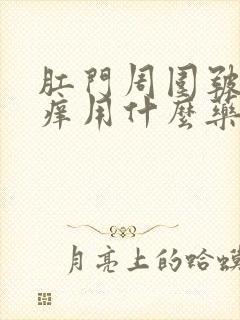 肛門周圍
痒用什麼藥
月亮上的蛤蟆